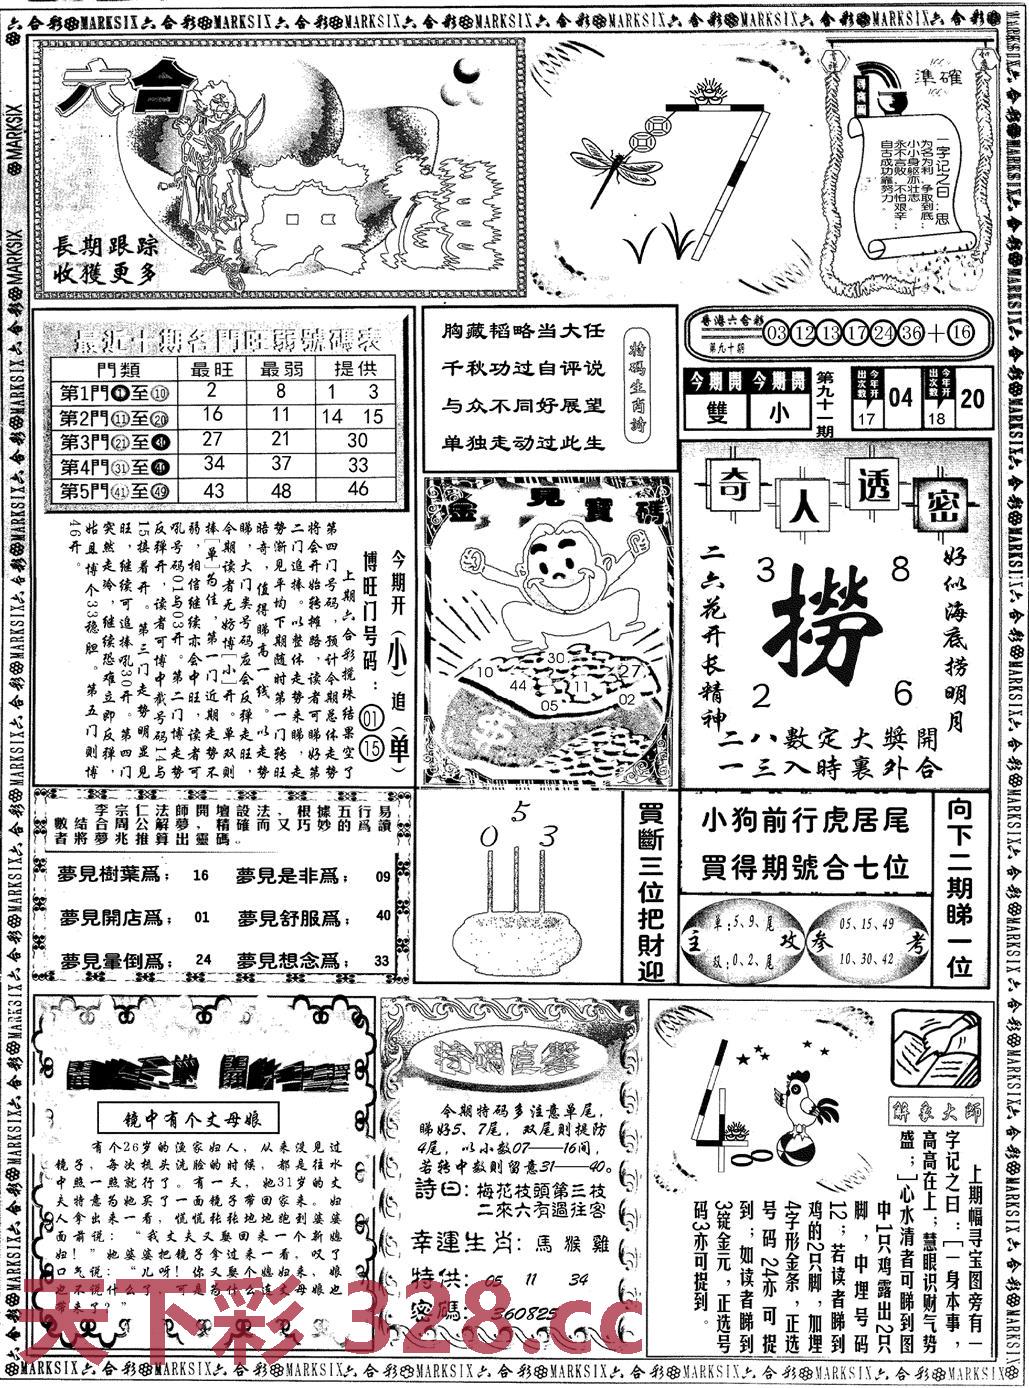 六合
長期跟踪
收獲更多
準確
一字记之曰:思
为名为利 争取到底
小小身躯亦壮志
永不言败 不怕艰辛
自古成功靠努力
最近十期各門旺弱號碼表
門類 最旺 最弱 提供
第1門①至⑩ 2 8 1 3
第2門⑪至⑳ 16 11 14 15
第3門㉑至㉚ 27 21 30
第4門㉛至㊵ 34 37 33
第5門㊶至㊾ 43 48 46
胸藏韬略当大任
千秋功过自评说
与众不同好展望
单独走动过此生
特码生肖诗
香港六合彩
第九十期
03 12 13 17 24 36 + 16
今期開 雙
今期開 小
第九十一期
今年开出次数 17 04
今年开出次数 18 20
今期开(小)追(单)
博旺门号码:01 15
上期六合彩搅珠结果空了
第四门号码,预计今期总体走势
将会开始转摊路,读者可睇好第
二门追捧。以整体走势来睇,走
势渐见平均下期随时第一门转旺
暗奇,值得睇高一线。以走势
睇,大门类号码应会反弹走旺,
今期读者无妨博[小]开。单双则
捧[单]为佳,第一门近期走势不
弱,相信继续亦会中旺,读者可
吼号码01与03开。第二门博走势
反弹开,读者可博中截号码14与
15接着开。第三门走势明显见
旺,继续可追捧吼30开。第四门
突然走冷,继续恐难立即反弹,
姑且博个33稳胆。第五门则博
46开。
金見寶碼
30
10
44
11
27
05
02
奇人透密
二六花开长精神
好似海底捞明月
3 8
撈
2 6
二八數定大獎開
一三入時裏外合
李宗仁法師開壇設法,根據五行易
數結合周公解夢,精確而又巧妙的爲讀
者將夢兆推算出靈碼。
夢見樹葉爲; 16 夢見是非爲; 09
夢見開店爲; 01 夢見舒服爲; 40
夢見暈倒爲; 24 夢見想念爲; 33
0 5 3
買斷三位把財迎
小狗前行虎居尾
買得期號合七位
向下二期睇一位
主攻
单:5、9、尾
双:0、2、尾
参考
05、15、49
10、30、42
镜中有个丈母娘
有个26岁的渔家妇人,从来没见过
镜子,每次梳头洗脸的时候,都是往水
中照一照就行了。有一天,她31岁的丈
夫特意为她买了一面镜子带回家来。妇
人拿出来一看,慌慌张张地跑到婆婆
面前说:“我丈夫又娶回来一个新媳
妇!”她婆婆把镜子拿过来一看,叹了
口气说:“儿呀!你又娶个媳妇来,娘
也不说什么了,可是为什么连丈母娘也
带来了?”
特碼直擊
今期特码多注意单尾,
睇好5、7尾,双尾则提防
4尾,以小数07——16间,
若转中数则留意31——40。
詩曰:梅花枝頭第三枝
二來六有過往客
幸運生肖:馬猴雞
特供:05 11 34
密碼:360825
解象大師
上期幅寻宝图旁有一
字记之曰:[一身本事,
高高在上;慧眼识财气势
盛;]心水清者可睇到图
中1只鸡露出2只
脚,中埋号码
12;若读者睇到
鸡的2只脚,加埋
4字形金条,正选
号码24亦可捉
到;如读者睇到
3锭金元,正选号
码3亦可捉到。
天下彩 328.cc
六合彩MARKSIX六合彩MARKSIX六合彩MARKSIX